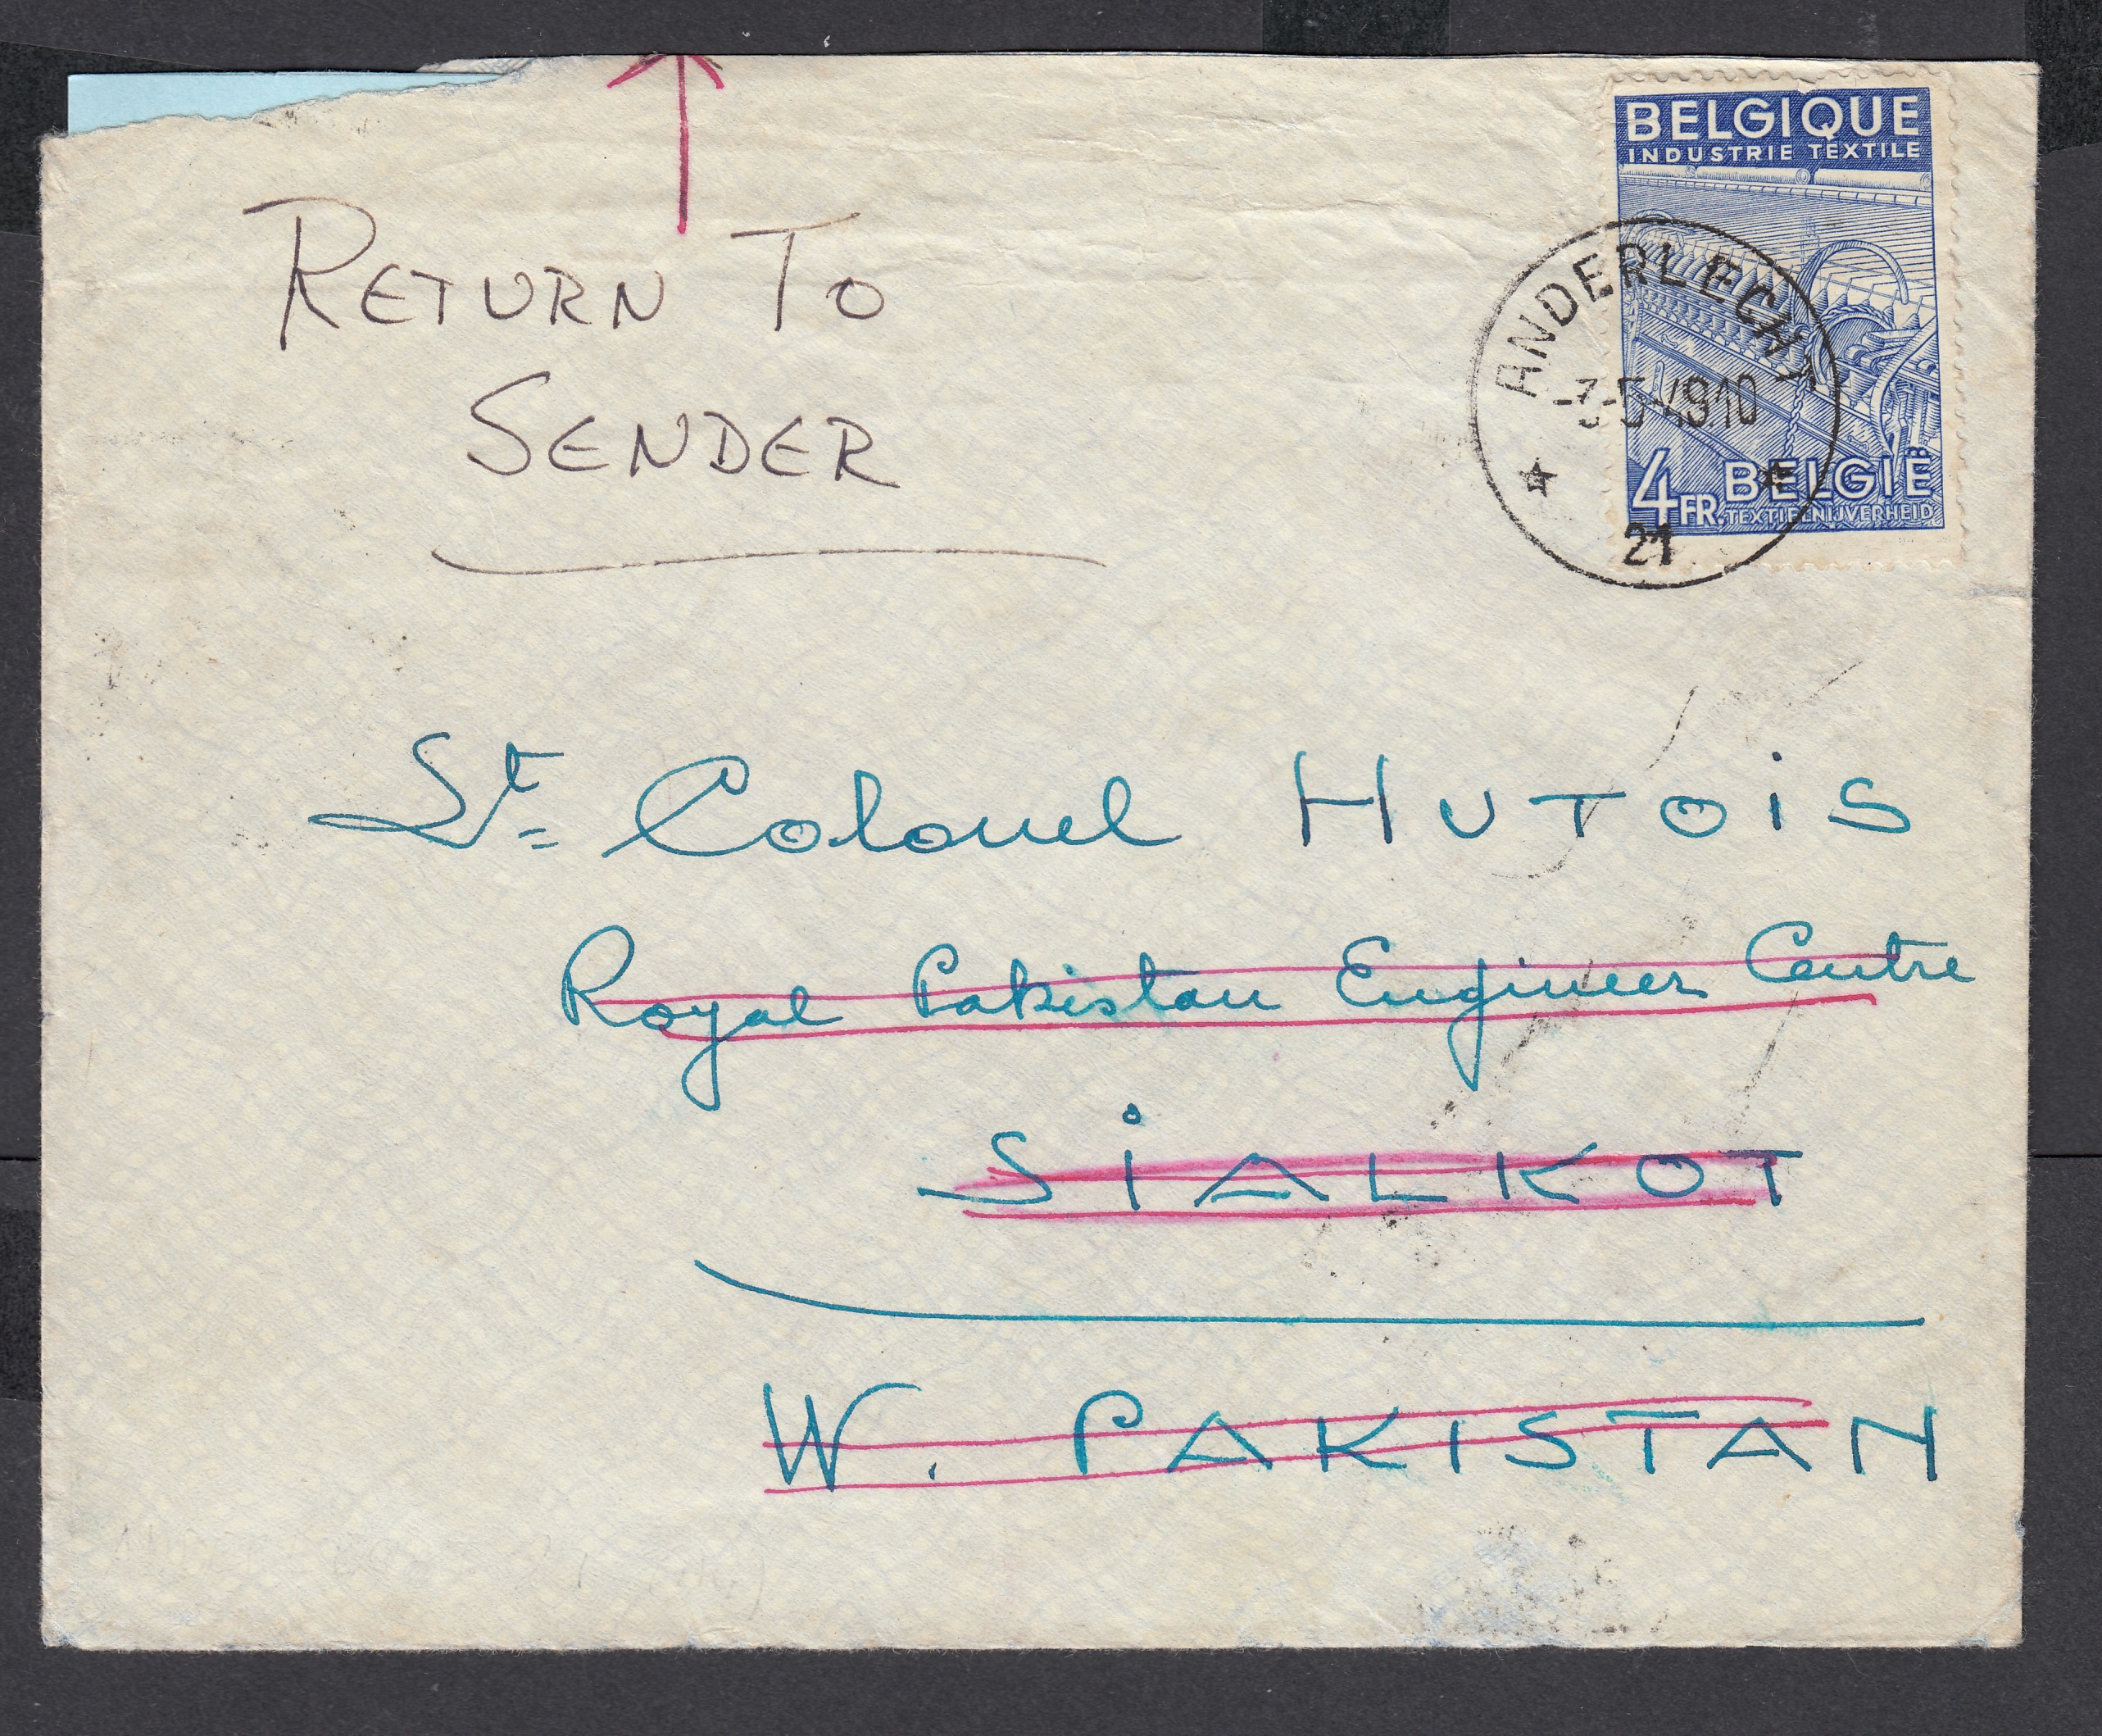 RETURN TO
SENDER
BELGIQUE
INDUSTRIE TEXTILE
ANDERLECHT
-3-5-49.10
21
4 FR. BELGIË
TEXTIELNIJVERHEID
Lt= Colonel HUTOIS
Royal Pakistan Engineer Centre
SIALKOT
W. PAKISTAN